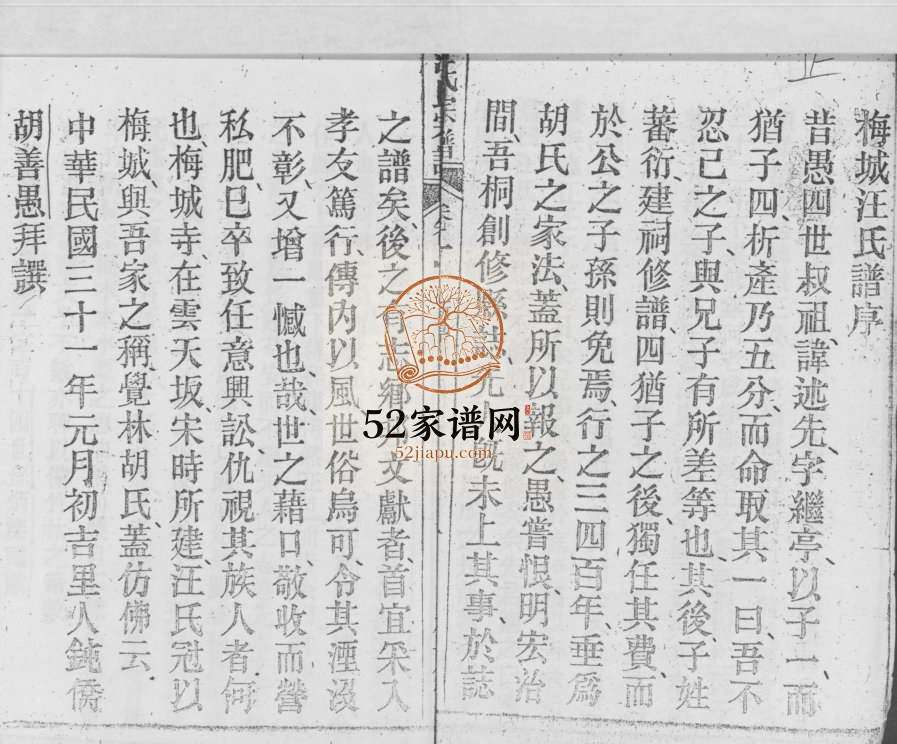 梅城汪氏譜序
昔愚四世叔祖、諱述先、字繼亭、以子一、而
猶子四、析產乃五分、而命取其一曰、吾不
忍己之子、與兄子有所差等也、其後、子姓
蕃衍、建祠修譜、四猶子之後、獨任其費、而
於公之子孫則免焉、行之三四百年、垂爲
胡氏之家法、蓋所以報之、愚嘗恨、明宏治
間、吾桐創修縣誌、未上其事、於誌
汪氏宗譜
之譜矣、後之有志鄉文獻者、首宜采入
孝友篤行、傳內以風世俗烏可、令其湮沒
不彰、又增一憾也、哉、世之藉口、敬收而營
私肥、已卒致任意興訟、仇視其族人者、何
也、梅城寺、在雲天坂、宋時所建、汪氏冠以
梅城、與吾家之稱、覺林胡氏、蓋仿佛云、
中華民國三十一年元月初吉里人鈍僑
胡善愚拜譔
52家谱网
52jiapu.com